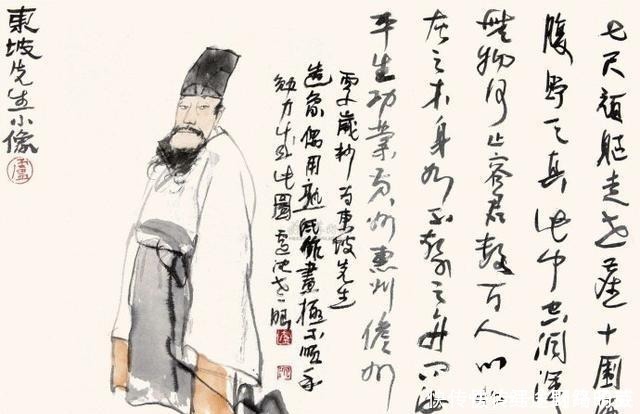 東坡先生小像
盧
七尺頑軀走世塵十圍便
腹貯天真此中空洞渾
無物何止容君數百人心
灰之木身如不繫之舟問汝
平生功業黃州惠州儋州
歲抄為東坡先生
造象偶用熟紙作畫極不順手
勉力此圖